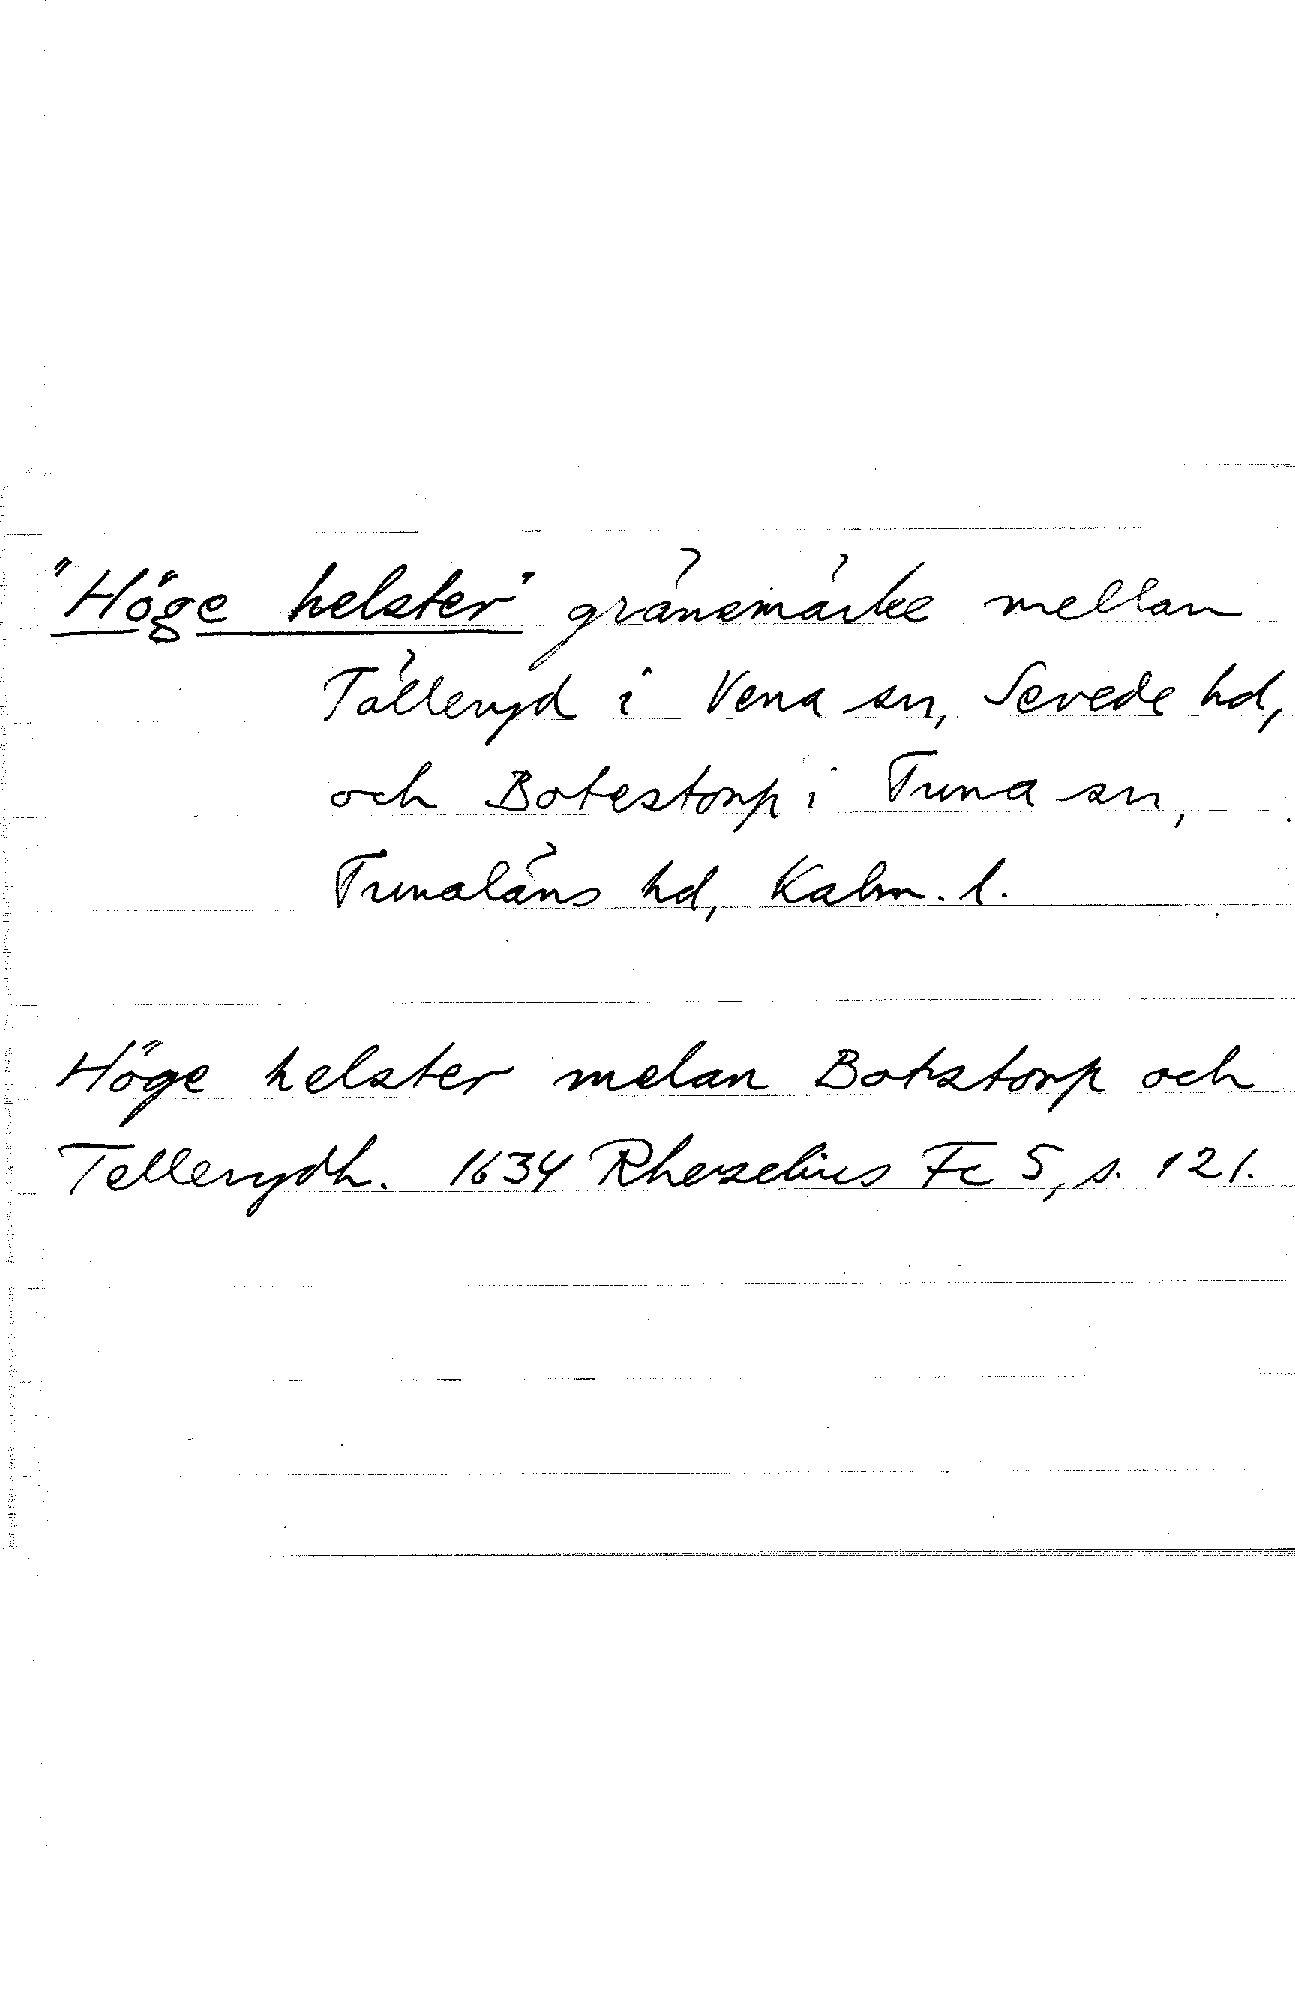 "Höge helster" gränsmärke mellan
Tälleryd i Vena sn, Sevede hd,
och Botestorp i Tuna sn,
Tunaläns hd, Kalm. l.
Höge helster melan Botstorp och
Tellerydh. 1634 Rhezelius Fc 5, s. 121.